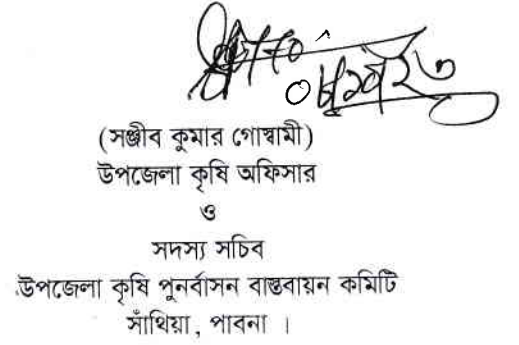 (সঞ্জীব কুমার গোস্বামী)
উপজেলা কৃষি অফিসার
ও
সদস্য সচিব
উপজেলা কৃষি পুনর্বাসন বাস্তবায়ন কমিটি
সাঁথিয়া, পাবনা ।